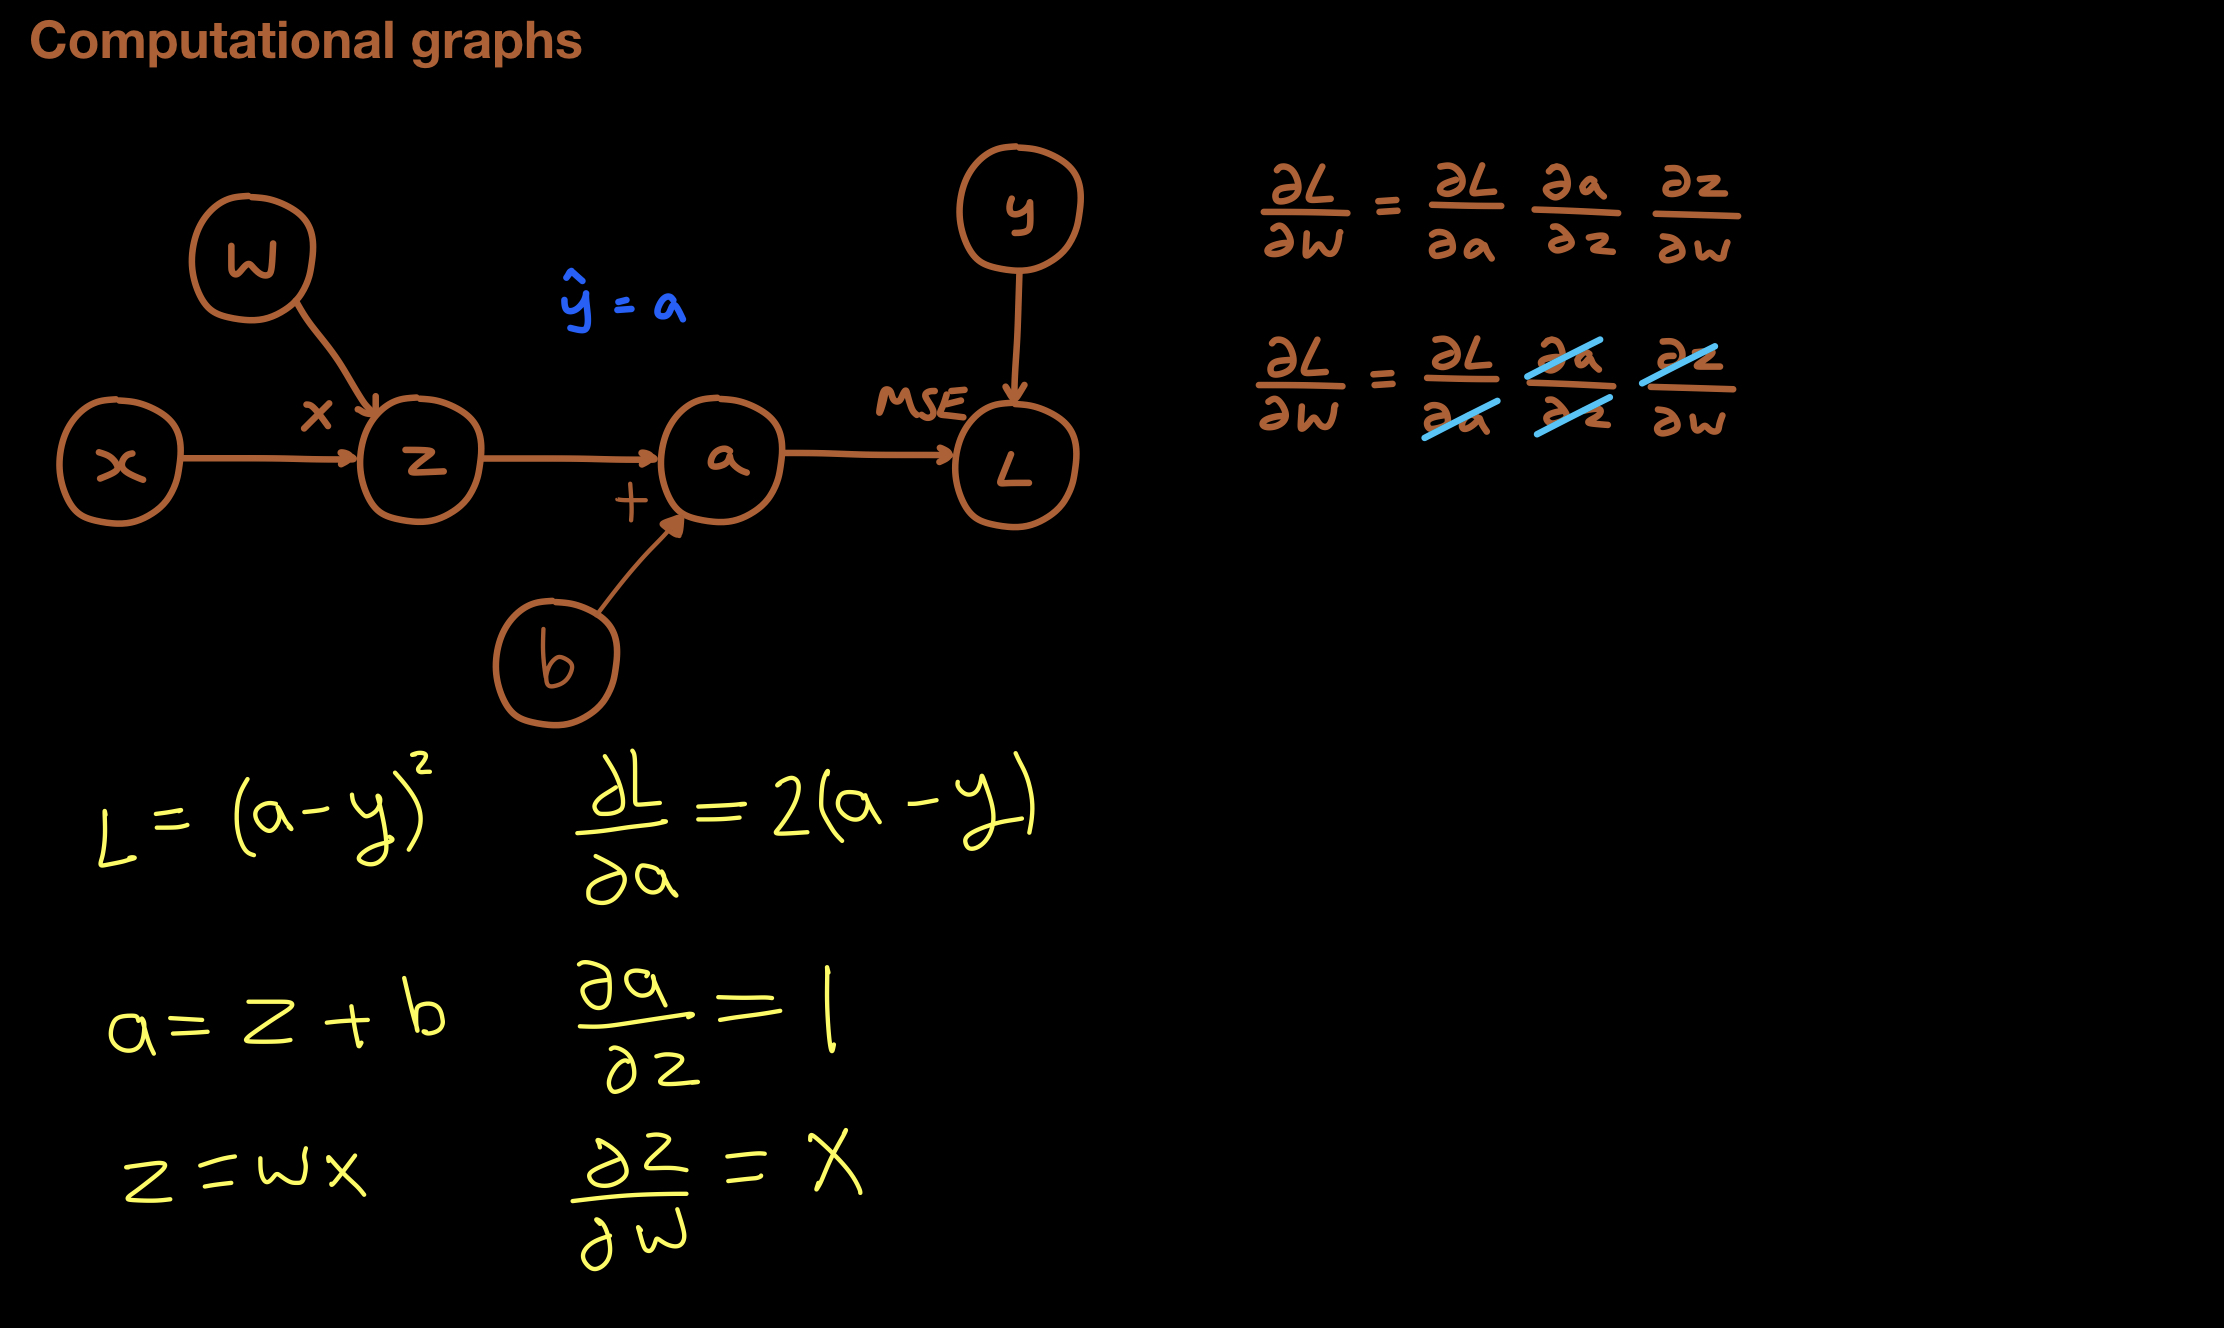 Computational graphs
w
y
ŷ = a
x
x
z
+
a
MSE
L
b
∂L/∂w = ∂L/∂a ∂a/∂z ∂z/∂w
∂L/∂w = ∂L/∂a ∂a/∂z ∂z/∂w
L = (a - y)² ∂L/∂a = 2(a - y)
a = z + b ∂a/∂z = 1
z = wx ∂z/∂w = x